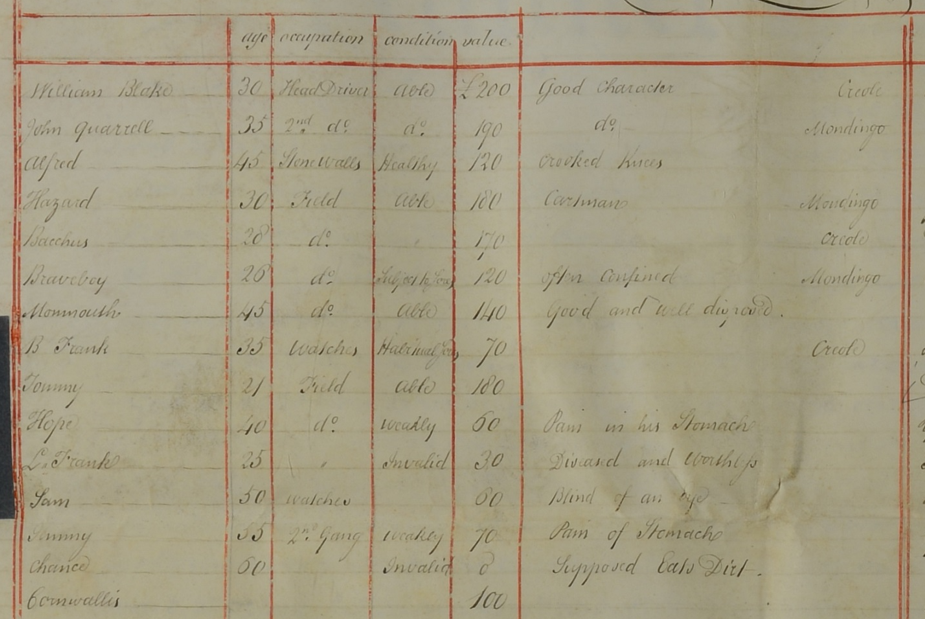 age occupation condition value
William Blake 30 Head Driver Able £200 Good Character Creole
John Quarrell 35 2nd do do 190 do Mondingo
Alfred 45 Stone Walls Healthy 120 Crooked Knees
Hazard 30 Field Able 180 Cartman Mondingo
Bacchus 28 do 170 Creole
Braveboy 26 do 120 oftn Confined Mondingo
Monmouth 45 do Able 140 Good and well disposed.
B Frank 35 Watches 70 Creole
Tommy 21 Field Able 180
Hope 40 do Weakly 60 Pain in his Stomach
L. Frank 25 " Invalid 30 Diseased and Worthless
Sam 50 Watches 60 Blind of an Eye
35 2nd Gang Weakly 70 Pain of Stomach
Chance 60 Invalid 0 Supposed Eats Dirt.
Cornwallis 100